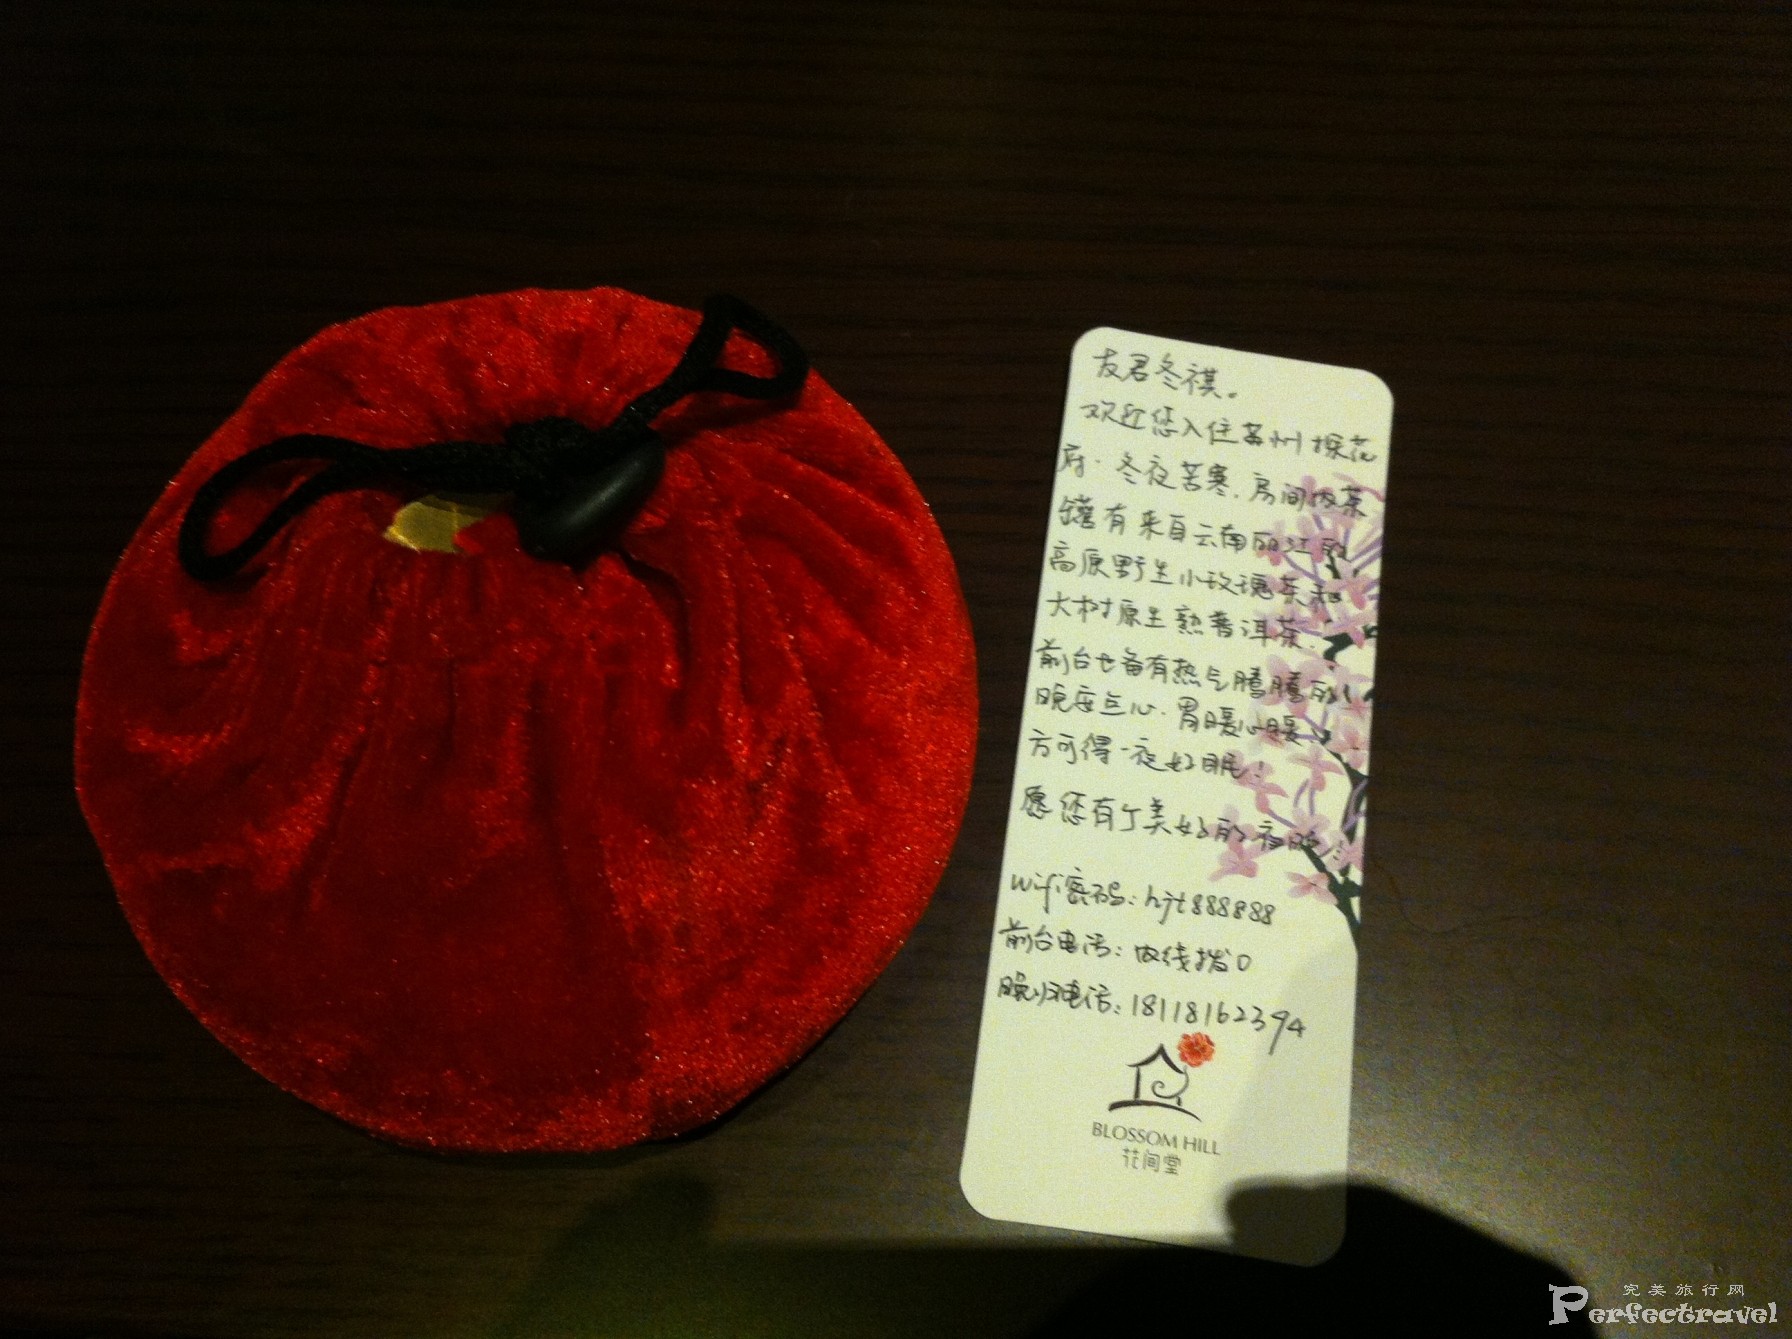 友君冬祺。
欢迎您入住苏州探花
府。冬夜苦寒，房间内茶
罐有来自云南丽江的
高原野生小玫瑰茶和
大树原生熟普洱茶.
前台也备有热气腾腾的
晚安点心.胃暖心暖
方可得一夜好眠！
愿您有个美好的夜晚！
wifi密码：hjt888888
前台电话：内线拨0
晚归电话：18118162394
BLOSSOM HILL
花间堂
完美旅行网
Perfectravel